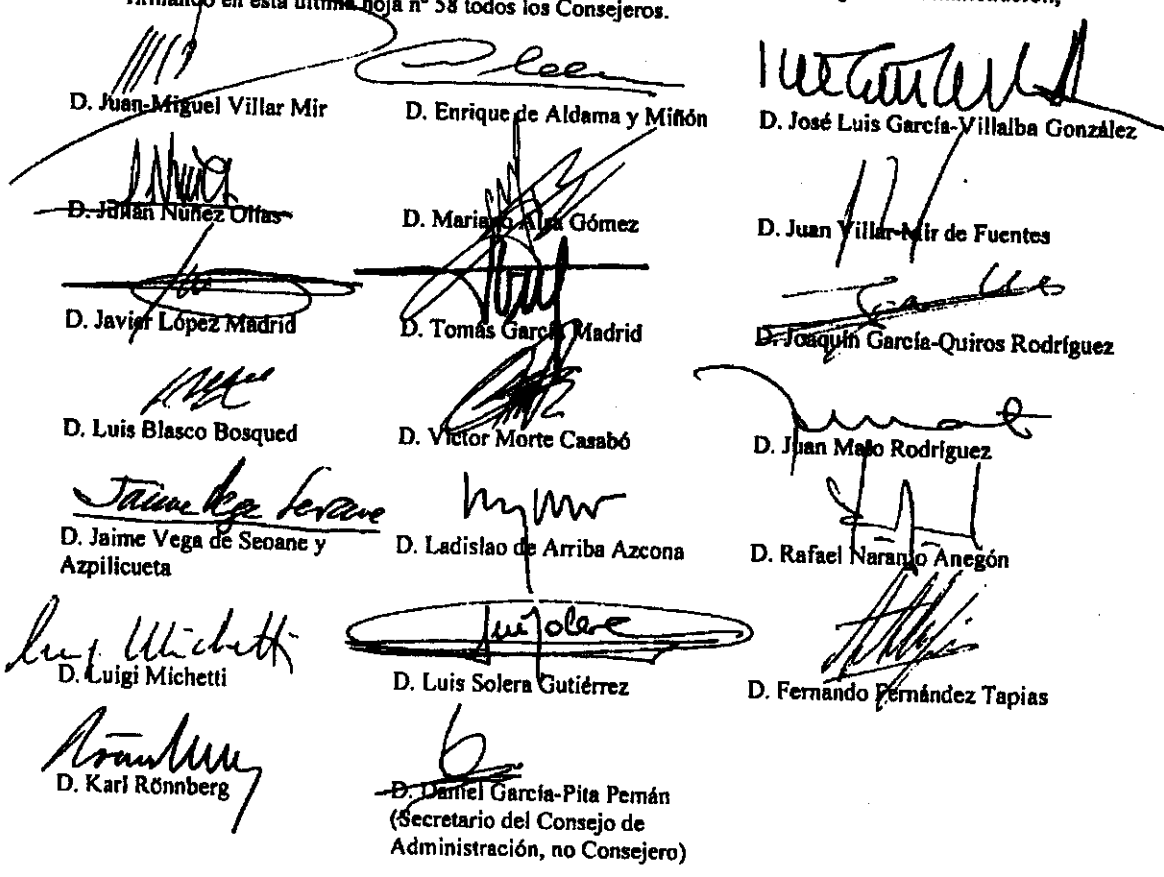 en esta última hoja nº 58 todos los Consejeros.
D. Juan-Miguel Villar Mir
D. Enrique de Aldama y Miñón
D. José Luis García-Villalba González
D. Julián Núñez Olías
D. Mariano Gómez
D. Juan Villar-Mir de Fuentes
D. Javier López Madrid
D. Tomás García Madrid
D. Joaquín García-Quiros Rodríguez
D. Luis Blasco Bosqued
D. Víctor Morte Casabó
D. Juan Mato Rodríguez
Jaime Vega Seoane
D. Jaime Vega de Seoane y
Azpilicueta
D. Ladislao de Arriba Azcona
D. Rafael Naranjo Anegón
Luigi Michetti
D. Luigi Michetti
D. Luis Solera Gutiérrez
D. Fernando Fernández Tapias
D. Karl Rönnberg
D. Daniel García-Pita Pemán
(Secretario del Consejo de
Administración, no Consejero)